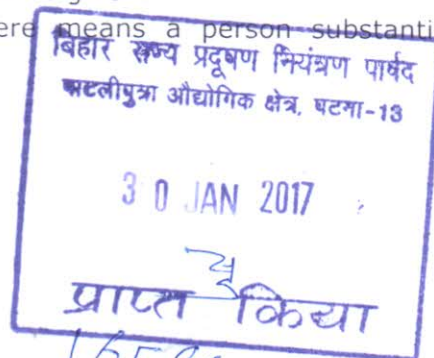 ere means a person substanti
बिहार राज्य प्रदूषण नियंत्रण पार्षद
पाटलीपुत्रा औद्योगिक क्षेत्र, पटना-13
30 JAN 2017
प्राप्त किया